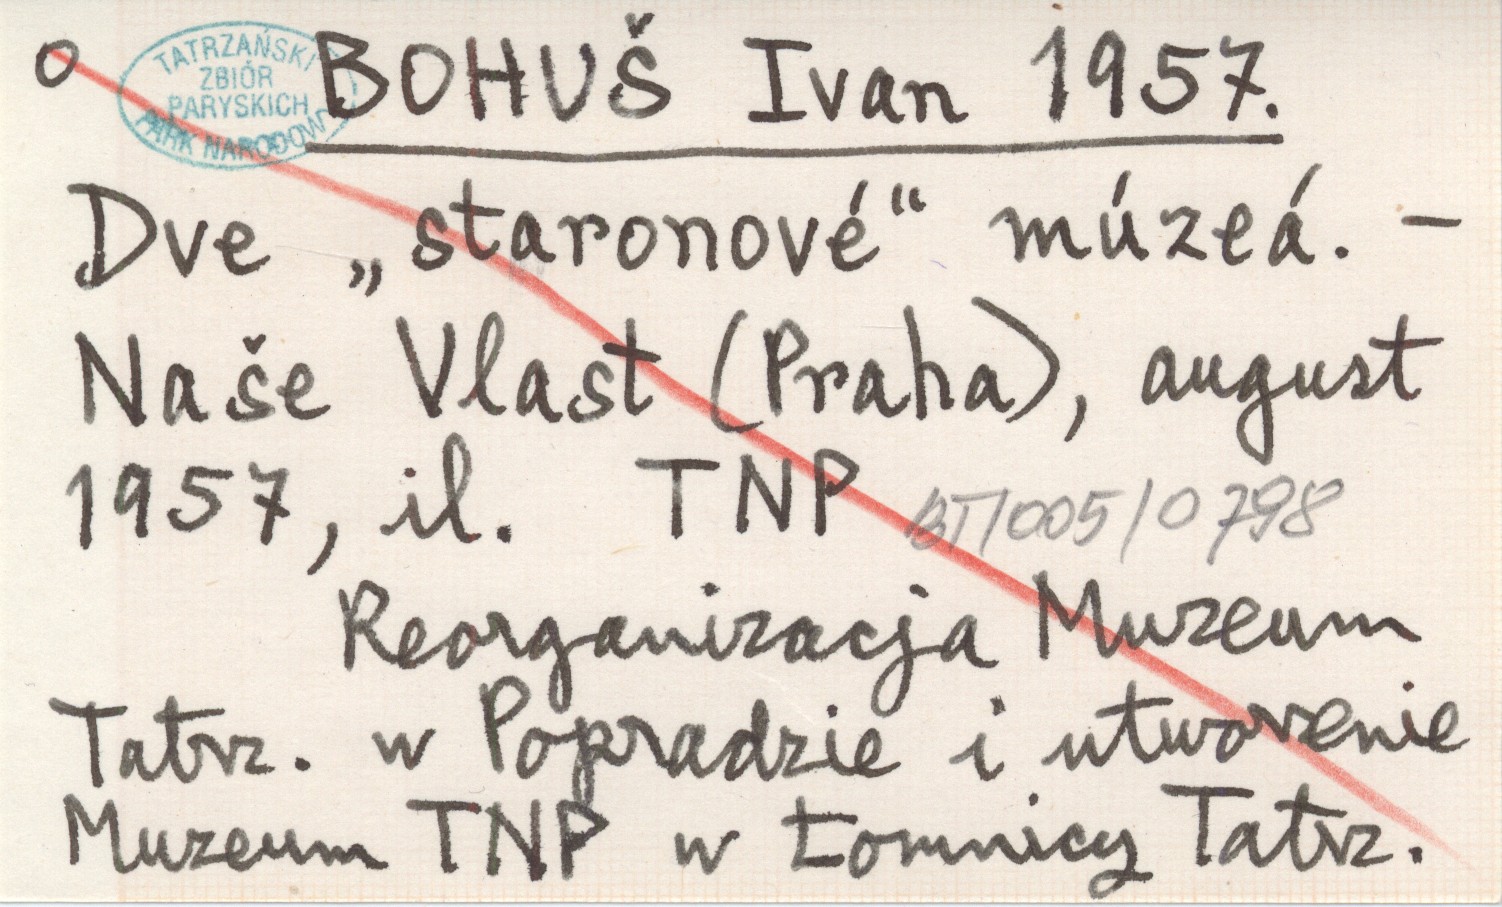 o
TATRZAŃSKI
ZBIÓR
PARYSKICH
PARK NARODOWY
BOHUŠ Ivan 1957.
Dve „staronové“ múzeá. –
Naše Vlast (Praha), august
1957, il. TNP BT/005/0798
Reorganizacja Muzeum
Tatrz. w Popradzie i utworzenie
Muzeum TNP w Łomnicy Tatrz.